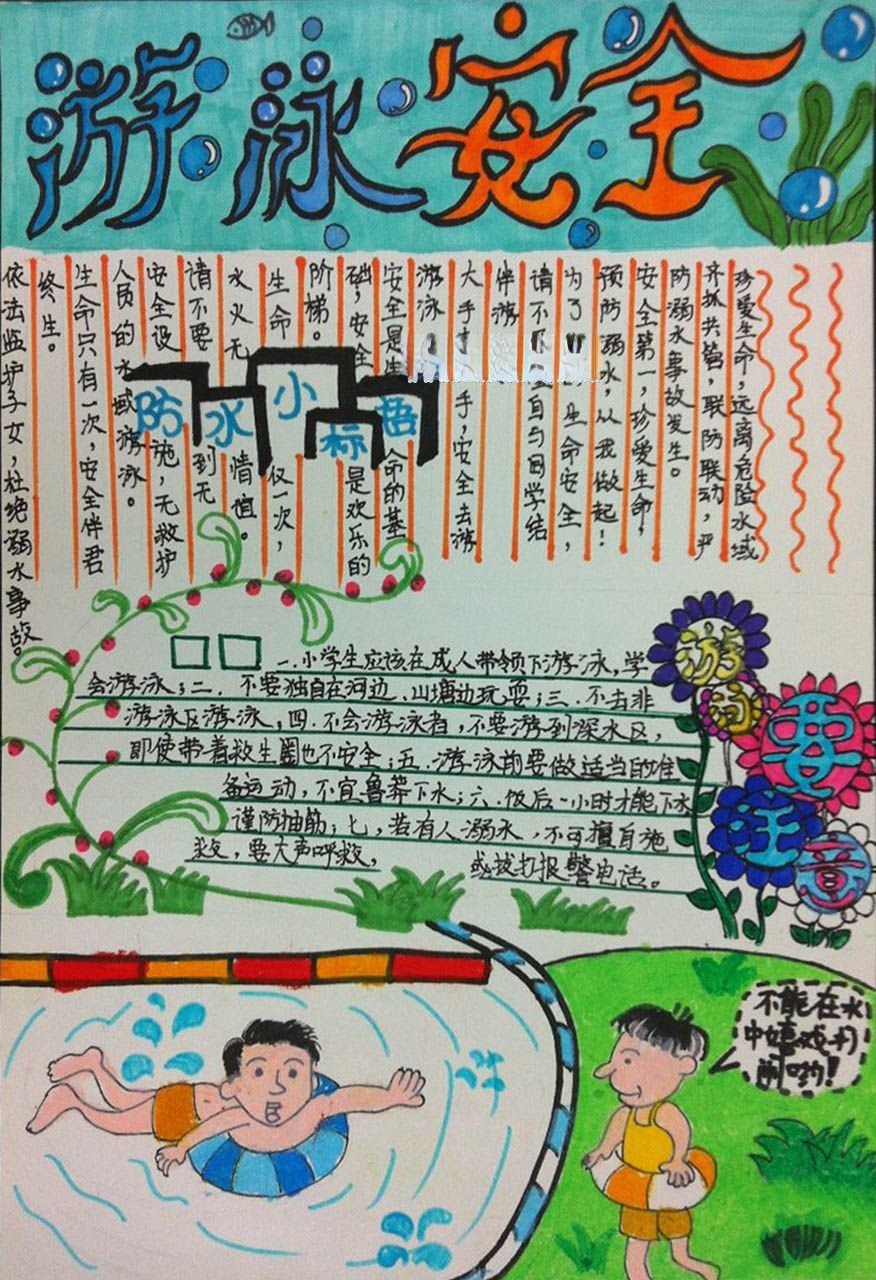 游泳安全
珍爱生命，远离危险水域
齐抓共管，联防联动，严
防溺水事故发生。
安全第一，珍爱生命，
预防溺水，从我做起！
为了 生命安全，
请不 自与同学结
伴游
大手 手，安全去游
游泳
安全是生命的基
础，安全是欢乐的
阶梯。
生命仅一次，
水火无情
请不要到无
安全设施，无救护
人员的水域游泳。
生命只有一次，安全伴君
终生。
依法监护子女，杜绝溺水事故。
防水小标语
一.小学生应该在成人带领下游泳，学
会游泳；二．不要独自在河边、山塘边玩耍；三．不去非
游泳区游泳，四．不会游泳者，不要游到深水区，
即使带着救生圈也不安全；五．游泳前要做适当的准
备运动，不宜鲁莽下水；六．饭后一小时才能下水
谨防抽筋；七，若有人溺水，不可擅自施
救，要大声呼救， 或拨打报警电话。
游泳要注意
不能在水
中嬉戏打
闹哟！